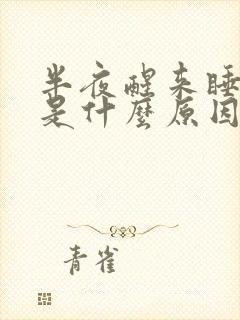 半夜醒来睡
是什麼原因
青雀